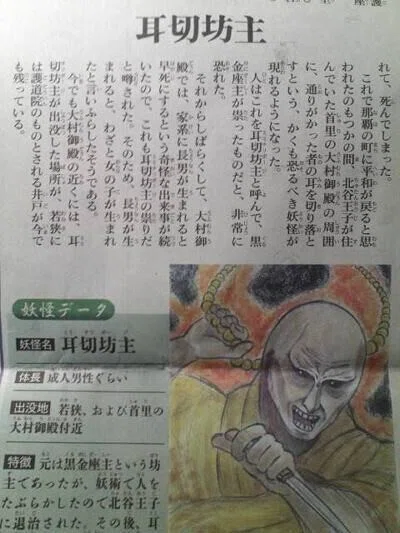 耳切坊主
れて、死んでしまった。
これで那覇の町に平和が戻ると思
われたのもつかの間、北谷王子が住
んでいた首里の大村御殿の周囲
に、通りがかった者の耳を切り落と
すという、かくも恐るべき妖怪が
現れるようになった。
人はこれを耳切坊主と呼んで、黒
金座主が祟ったものだと、非常に
恐れた。
それからしばらくして、大村御
殿では、家系に長男が生まれると
早死にするという奇怪な出来事が続
いたので、これも耳切坊主の祟りだ
と噂された。そのため、長男が生
まれると、わざと女の子が生まれ
たと言いふらしたそうである。
今でも大村御殿の近くには、耳
切坊主が出没した場所が、若狭に
は護道院のものとされる井戸が今で
も残っている。
妖怪データ
妖怪名 耳切坊主
体長 成人男性ぐらい
出没地 若狭、および首里の
大村御殿付近
特徴 元は黒金座主という坊
主であったが、妖術で人を
たぶらかしたので北谷王子
に退治された。その後、耳